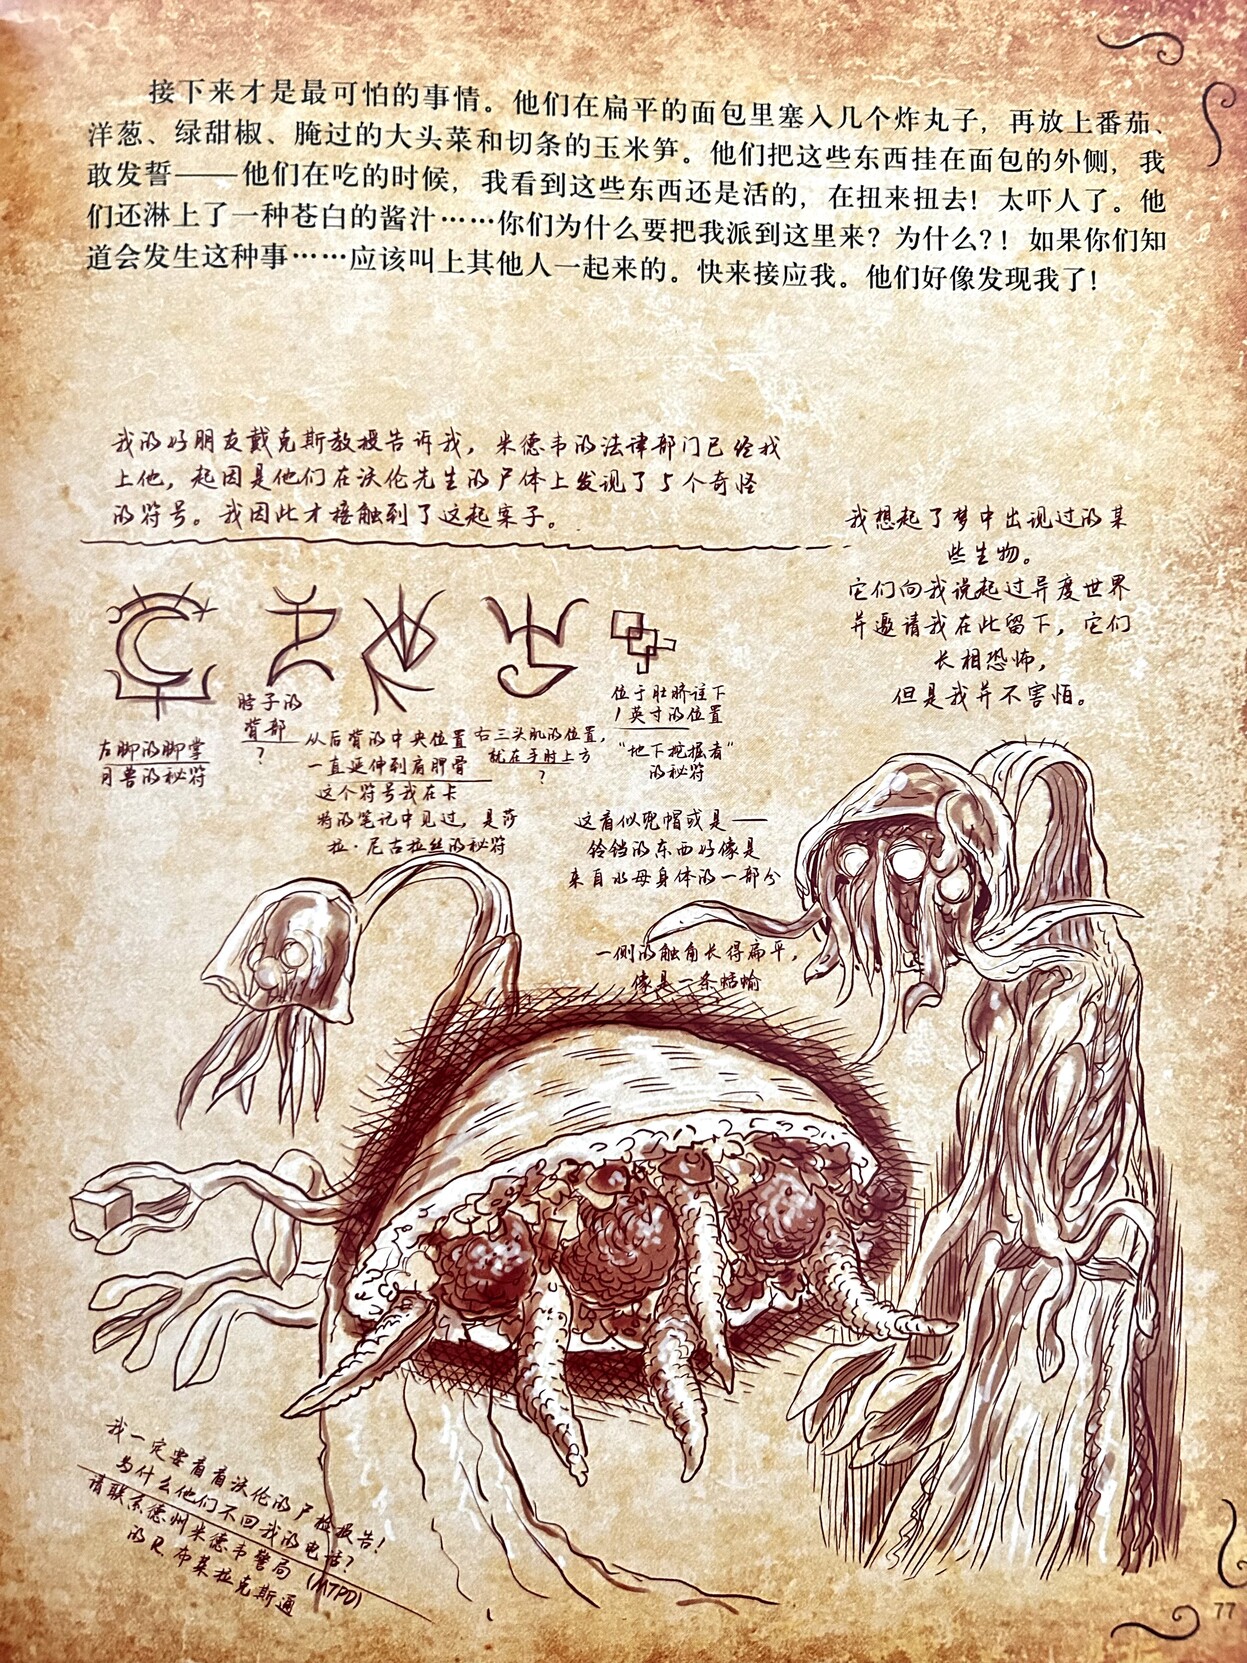 接下来才是最可怕的事情。他们在扁平的面包里塞入几个炸丸子，再放上番茄、
洋葱、绿甜椒、腌过的大头菜和切条的玉米笋。他们把这些东西挂在面包的外侧，我
敢发誓——他们在吃的时候，我看到这些东西还是活的，在扭来扭去！太吓人了。他
们还淋上了一种苍白的酱汁……你们为什么要把我派到这里来？为什么？！如果你们知
道会发生这种事……应该叫上其他人一起来的。快来接应我。他们好像发现我了！
我的好朋友戴克斯教授告诉我，米德韦的法律部门已经找
上他，起因是他们在沃伦先生的尸体上发现了5个奇怪
的符号。我因此才接触到了这起案子。
我想起了梦中出现过的某
些生物。
它们向我说起过异度世界
并邀请我在此留下，它们
长相恐怖，
但是我并不害怕。
左脚的脚掌
月兽的秘符
脖子的
背部
？
从后背的中央位置
一直延伸到肩胛骨
这个符号我在卡
特的笔记中见过，是莎
拉·尼古拉丝的秘符
右三头肌的位置，
就在手肘上方
？
位于肚脐往下
1英寸的位置
“地下挖掘者”
的秘符
这看似兜帽或是——
铃铛的东西好像是
来自水母身体的一部分
一侧的触角长得扁平，
像是一条蛞蝓
我一定要看看沃伦的尸检报告！
为什么他们不回我的电话？
请联系德州米德韦警局（MTPD）
的R.布莱拉克斯通
77